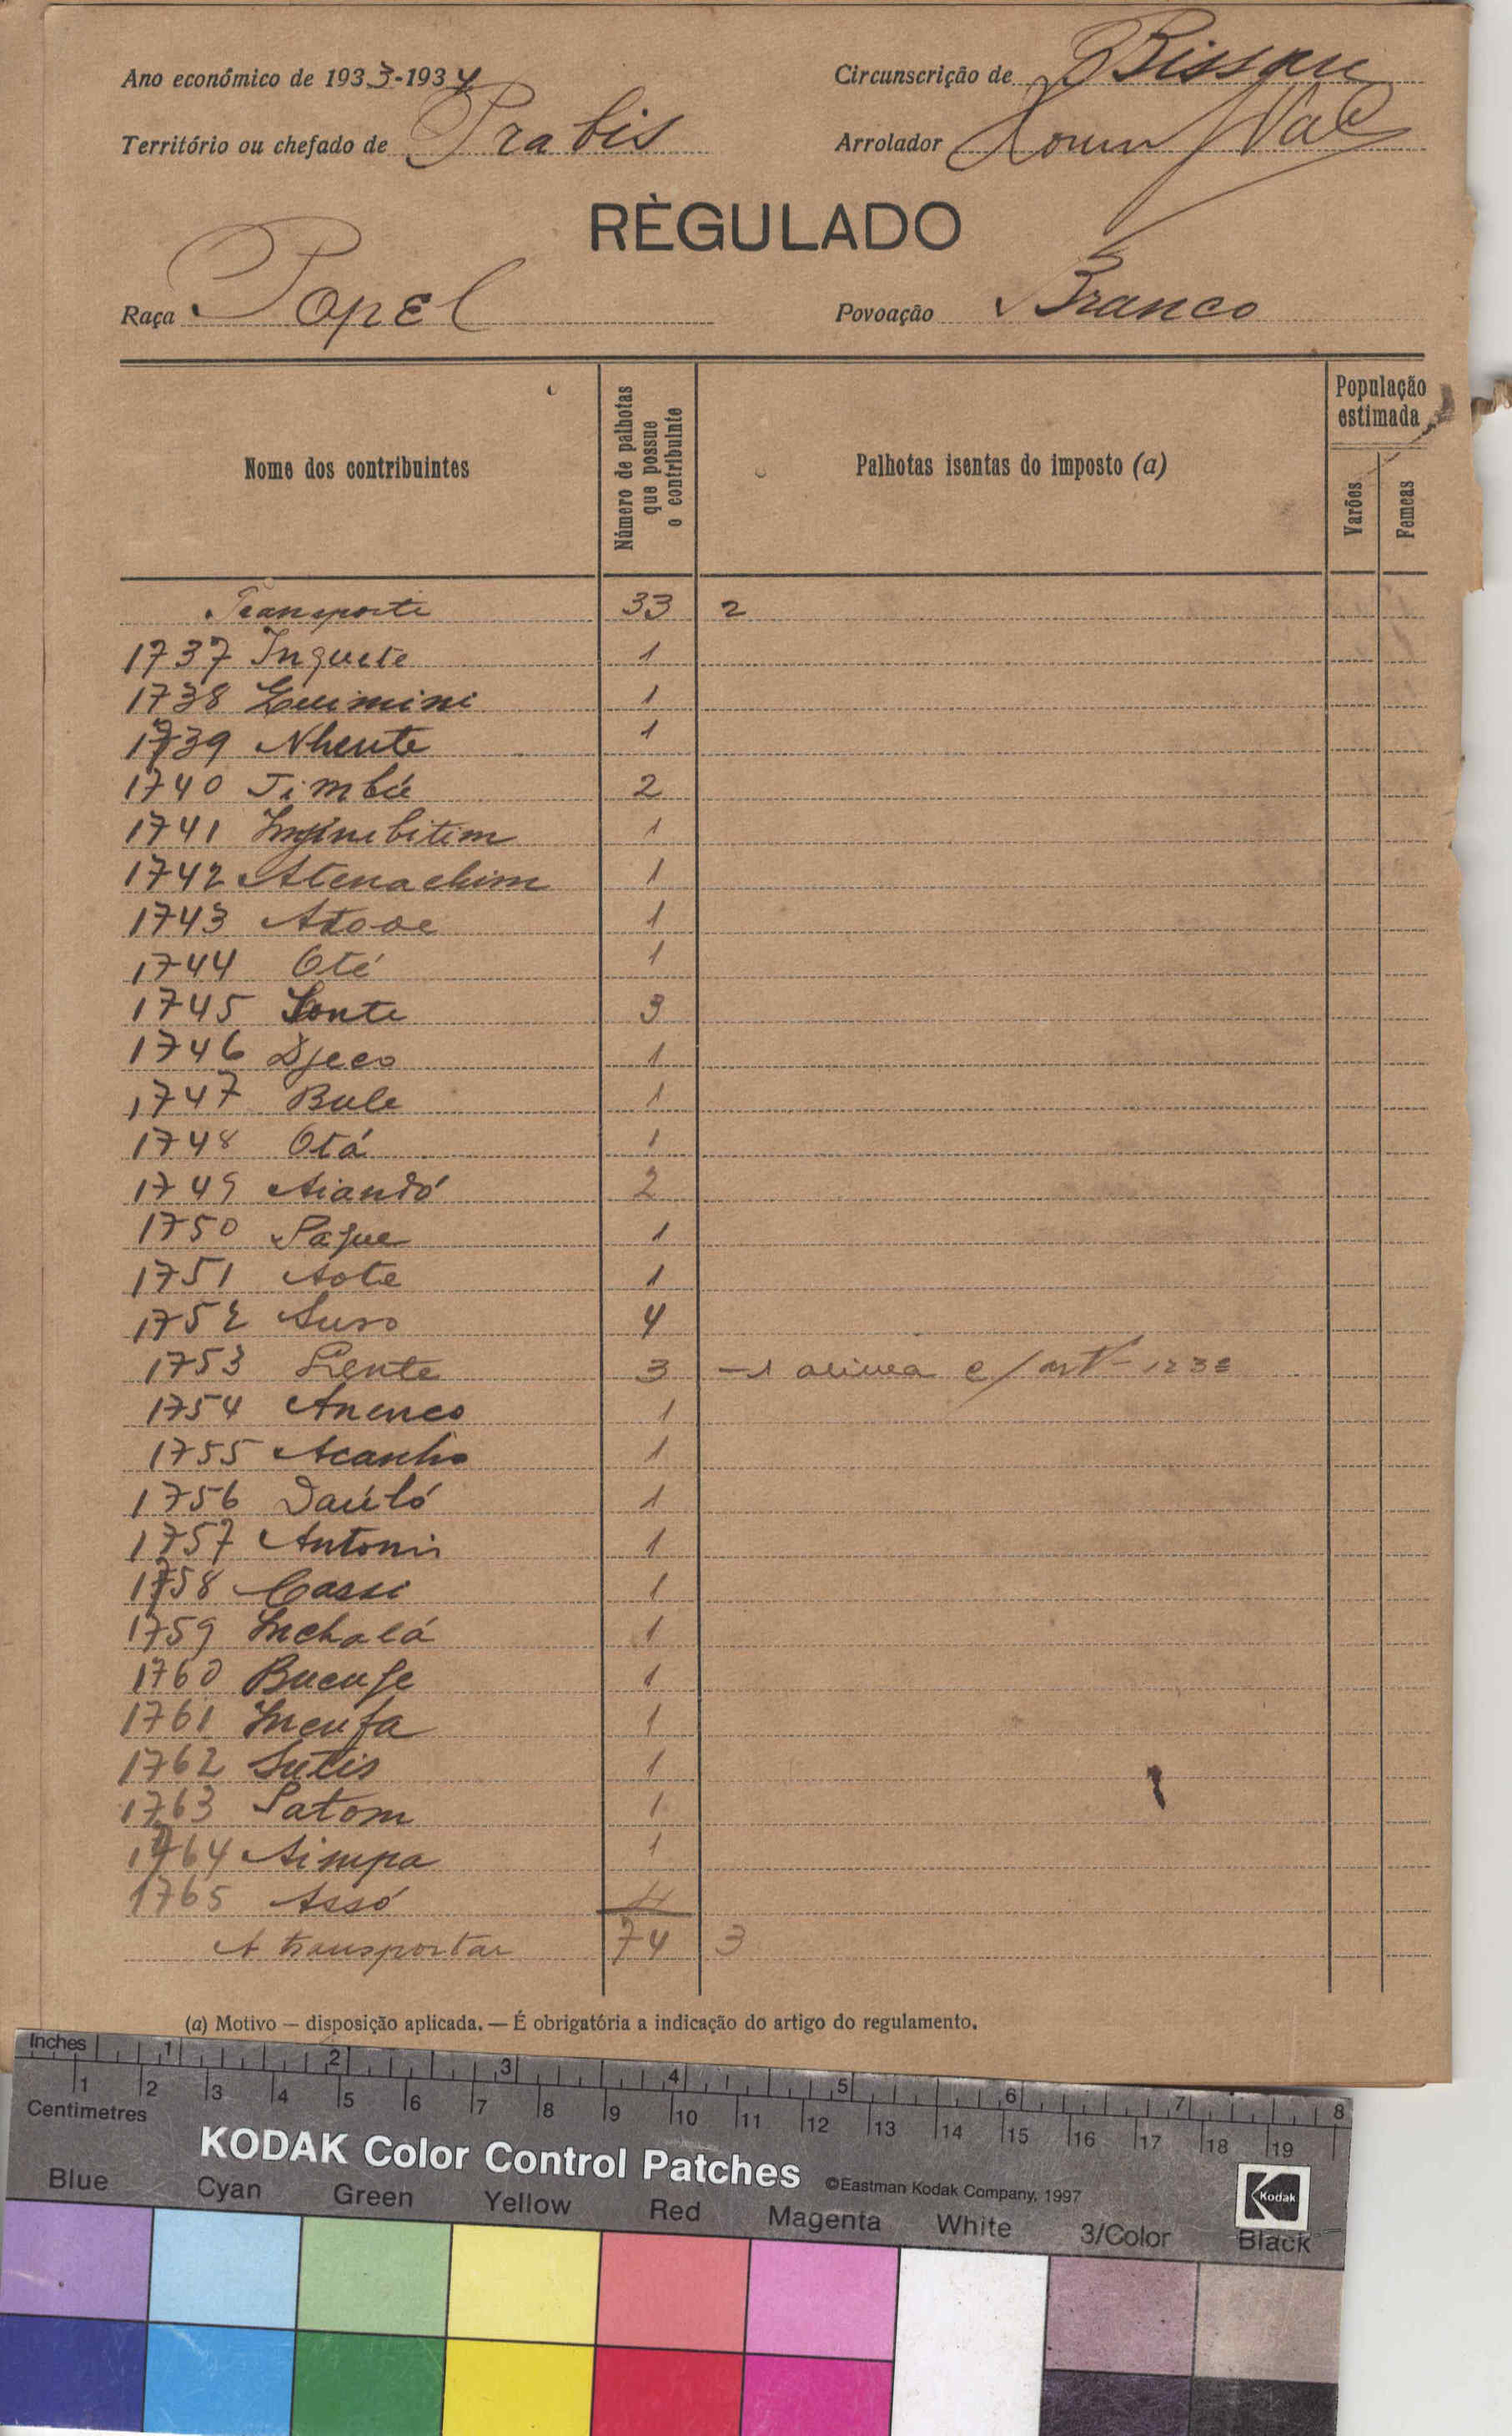 Ano económico de 1933-1934
Circunscrição de Bissau
Território ou chefado de Prabis
Arrolador
RÈGULADO
Raça Papel
Povoação Branco
Nome dos contribuintes
Número de palhotas que possue o contribuinte
Palhotas isentas do imposto (a)
População estimada
Varões
Femeas
Transporte 33 2
1737 Inquete 1
1738 Quimini 1
1739 Nhente 1
1740 Jimbú 2
1741 1
1742 Atenachim 1
1743 Atooe 1
1744 Oté 1
1745 Sonte 3
1746 Djeco 1
1747 Bule 1
1748 Otá 1
1749 Aiandó 2
1750 Paque 1
1751 Aote 1
1752 Suro 4
1753 Lente 3 - 1 alinea e/ art 123º
1754 Anenco 1
1755 Acanho 1
1756 Dauló 1
1757 Antonio 1
1758 Cassi 1
1759 Inchalá 1
1760 Bucufe 1
1761 Incufa 1
1762 Sutis 1
1763 Satom 1
1764 Aimpa 1
1765 Assó 4
A transportar 74 3
(a) Motivo — disposição aplicada. — É obrigatória a indicação do artigo do regulamento.
Inches 1 2 3 4 5 6 7 8
1 2 3 4 5 6 7 8 9 10 11 12 13 14 15 16 17 18 19
Centimetres
KODAK Color Control Patches ©Eastman Kodak Company, 1997 Kodak
Blue Cyan Green Yellow Red Magenta White 3/Color Black